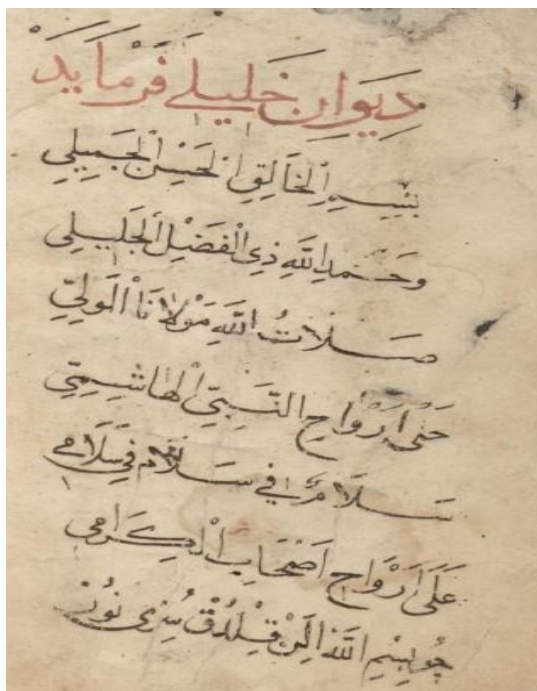 دِيوَانِ خَلِيلِي فَرْمَايَدْ
بِسْمِ الْخَالِقِ الْحَسَنِ الْجَمِيلِي
وَحَمْدِ اللَّهِ ذِي الْفَضْلِ الْجَلِيلِي
صَلَاتُ اللَّهِ مَوْلَانَا الْوَلِيِّ
عَلَى اَرْوَاحِ النَّبِيِّ الْهَاشِمِيِّ
سَلَامٌ فِي سَلَامٍ فِي سَلَامِي
عَلَى اَرْوَاحِ اَصْحَابِ الْكِرَامِي
چُو بِسْمِ اللَّهِ اِلَنْ قِلْدُقْ سُزِي نُوز